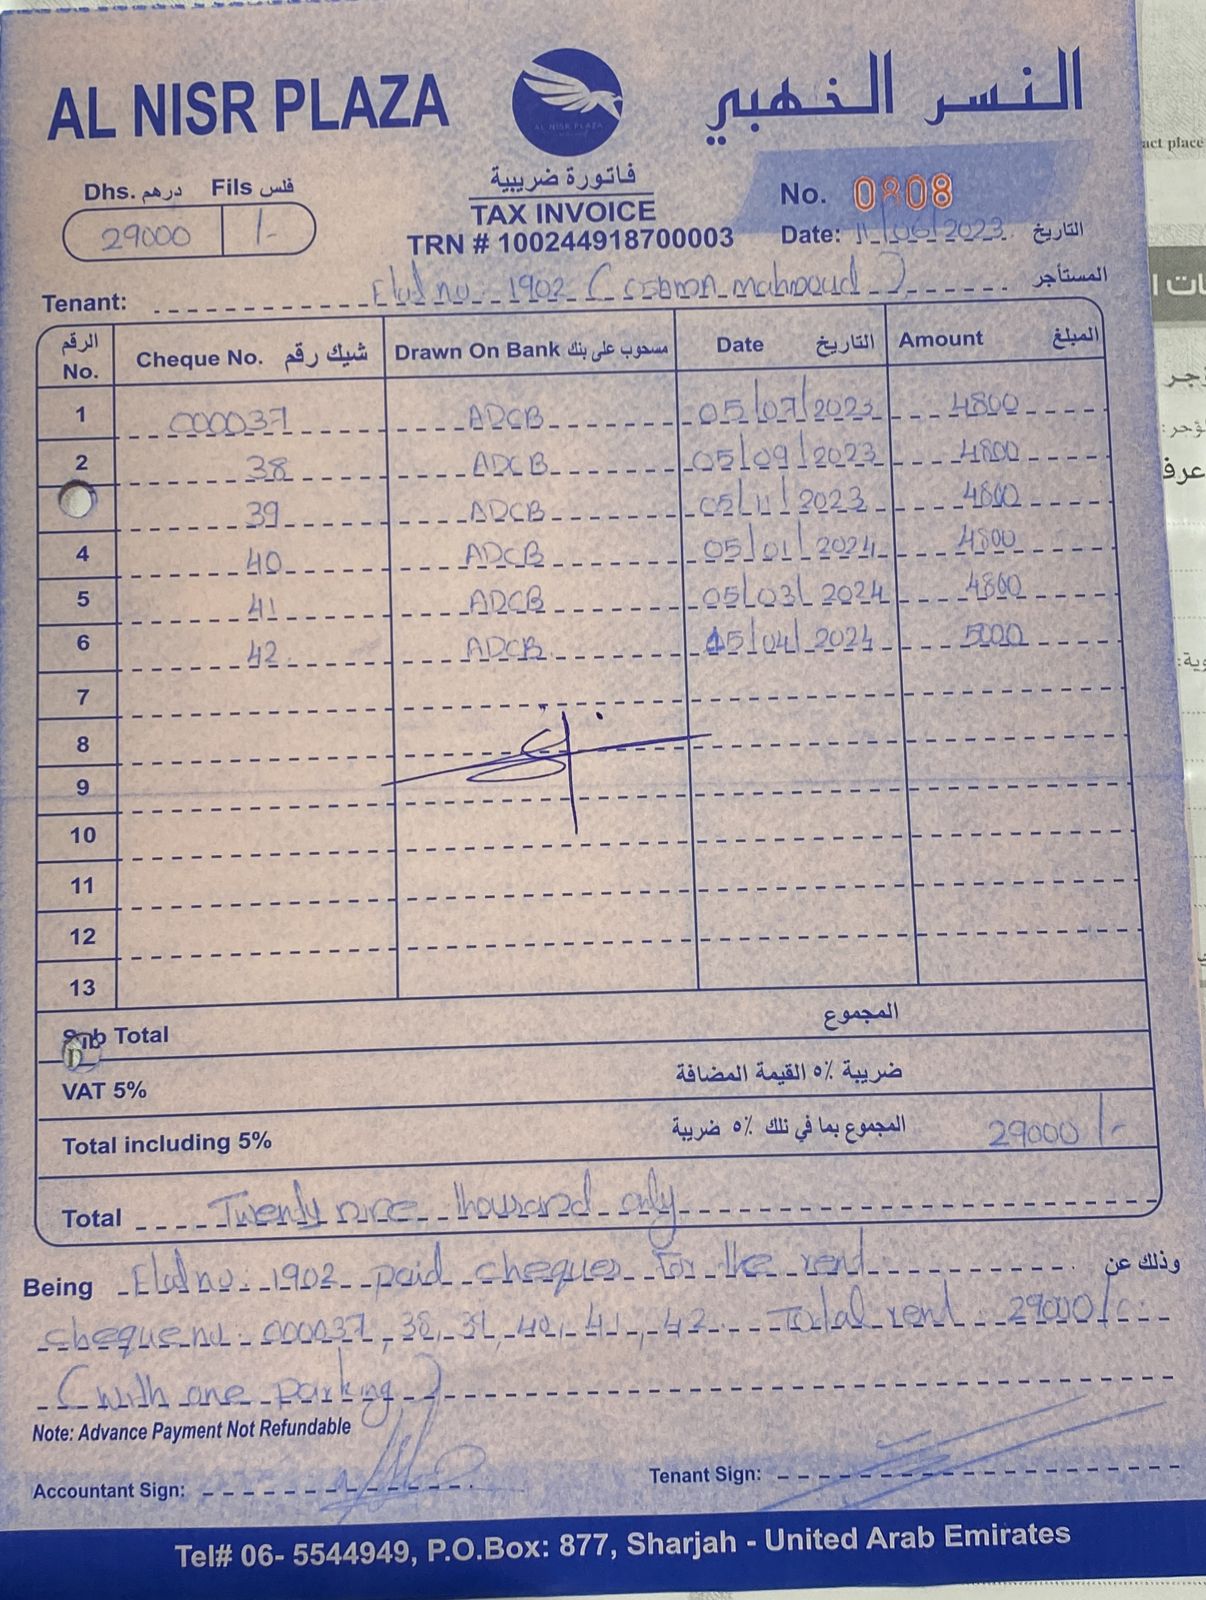 AL NISR PLAZA
AL NISR PLAZA
النسر الذهبي
Dhs. درهم Fils فلس
29000 /-
فاتورة ضريبية
TAX INVOICE
TRN # 100244918700003
No. 0808
Date: 11/06/2023 التاريخ
Tenant: Flat no: 1902 (osman mahmoud) المستأجر
الرقم No. Cheque No. شيك رقم Drawn On Bank مسحوب على بنك Date التاريخ Amount المبلغ
1 000037 ADCB 05/07/2023 4800
2 38 ADCB 05/09/2023 4800
39 ADCB 05/11/2023 4800
4 40 ADCB 05/01/2024 4800
5 41 ADCB 05/03/2024 4800
6 42 ADCB 15/04/2024 5000
7
8
9
10
11
12
13
Sub Total المجموع
VAT 5% ضريبة ٥٪ القيمة المضافة
Total including 5% المجموع بما في تلك ٥٪ ضريبة 29000/-
Total Twenty nine thousand only
Being Flat no. 1902 paid cheques for the rent وذلك عن
cheque no. 000037, 38, 39, 40, 41, 42. Total rent 29000/-
(with one parking)
Note: Advance Payment Not Refundable
Accountant Sign: Tenant Sign:
Tel# 06- 5544949, P.O.Box: 877, Sharjah - United Arab Emirates
act place